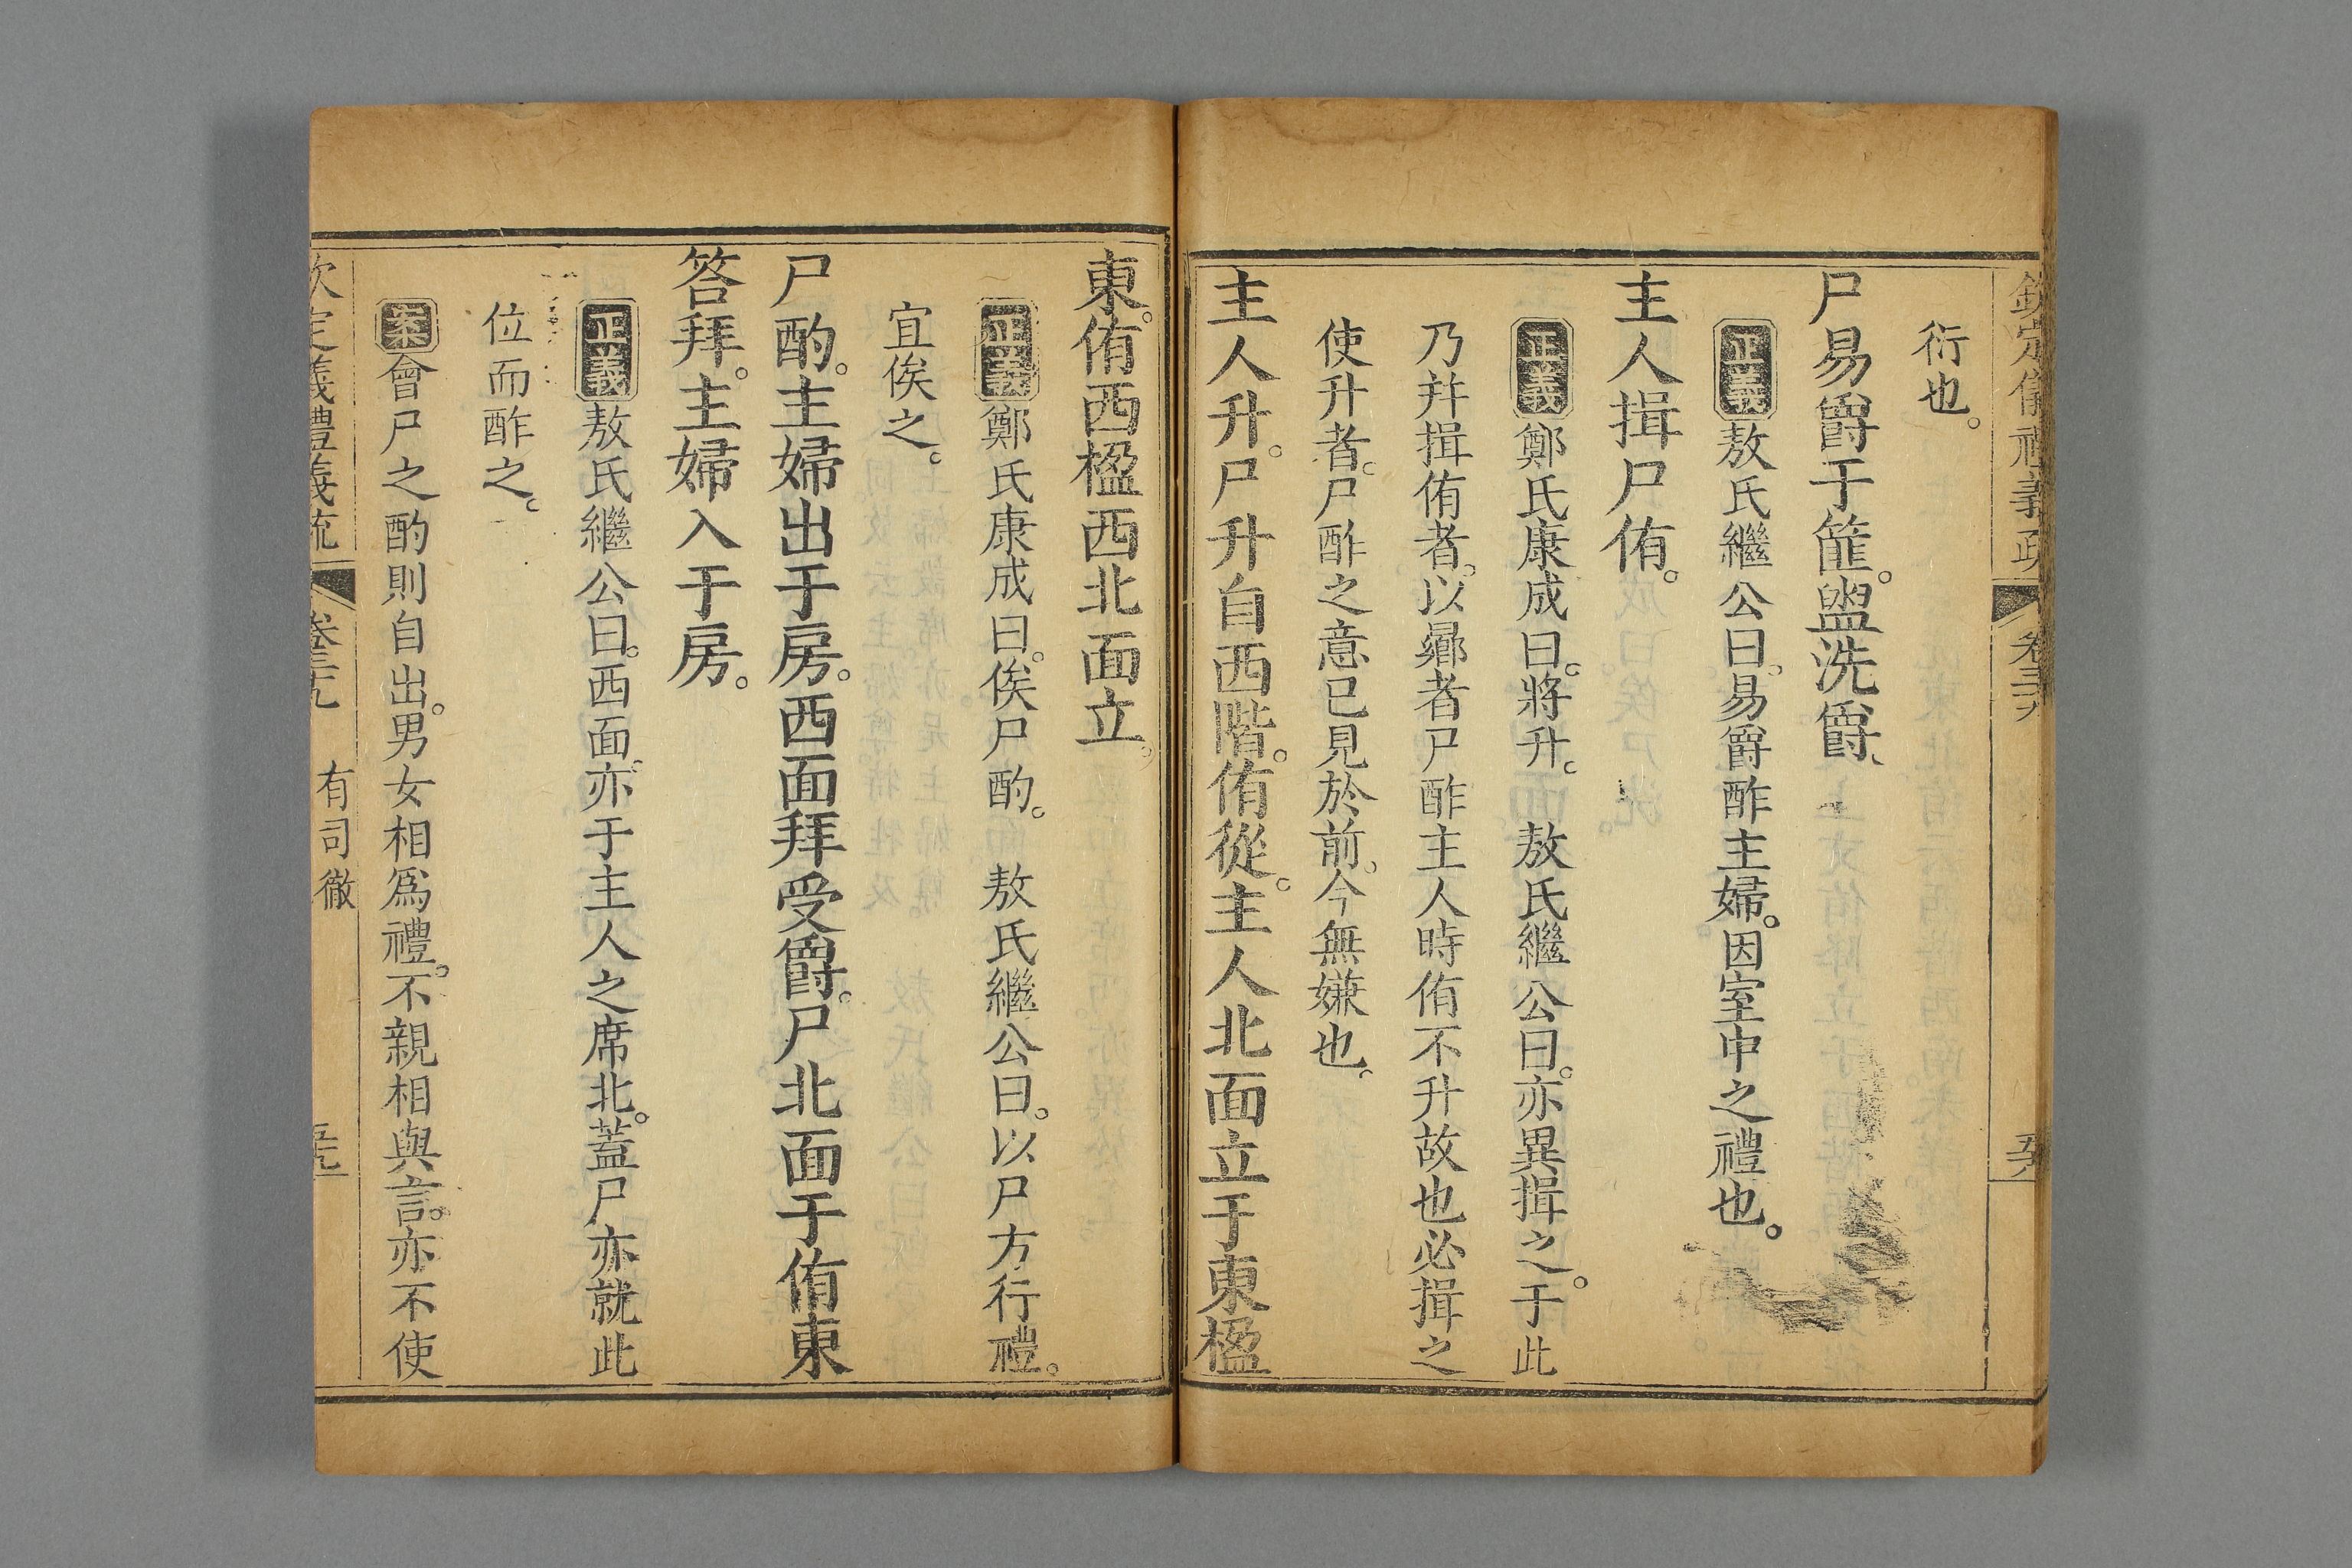 欽定儀禮義疏 卷三十八 五十八
衍也。
尸易爵于篚。盥洗爵、
正義敖氏繼公曰。易爵酢主婦。因室中之禮也。
主人揖尸侑。
正義鄭氏康成曰。將升。 敖氏繼公曰。亦異揖之。于此
乃并揖侑者。以曏者尸酢主人時侑不升故也必揖之
使升者。尸酢之意已見於前。今無嫌也。
主人升。尸升自西階。侑從。主人北面立于東楹
東。侑西楹西北面立。
正義鄭氏康成曰。俟尸酌。 敖氏繼公曰。以尸方行禮。
宜俟之。
尸酌。主婦出于房。西面拜受爵。尸北面于侑東
答拜。主婦入于房。
正義敖氏繼公曰。西面。亦于主人之席北。蓋尸亦就此
位而酢之。
案會尸之酌則自出。男女相爲禮。不親相與言。亦不使
欽定儀禮義疏 卷三十九 有司徹 五十九